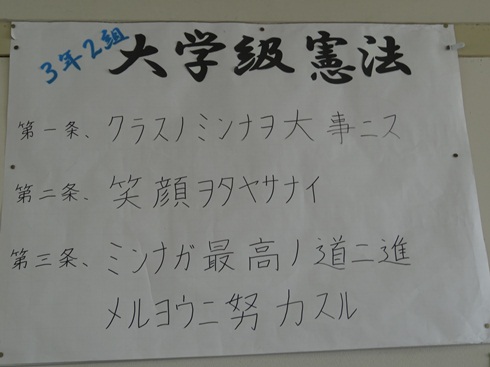 3年2組
大学級憲法
第一条、クラスノミンナヲ大事ニス
第二条、笑顔ヲタヤサナイ
第三条、ミンナガ最高ノ道ニ進
メルヨウニ努力スル